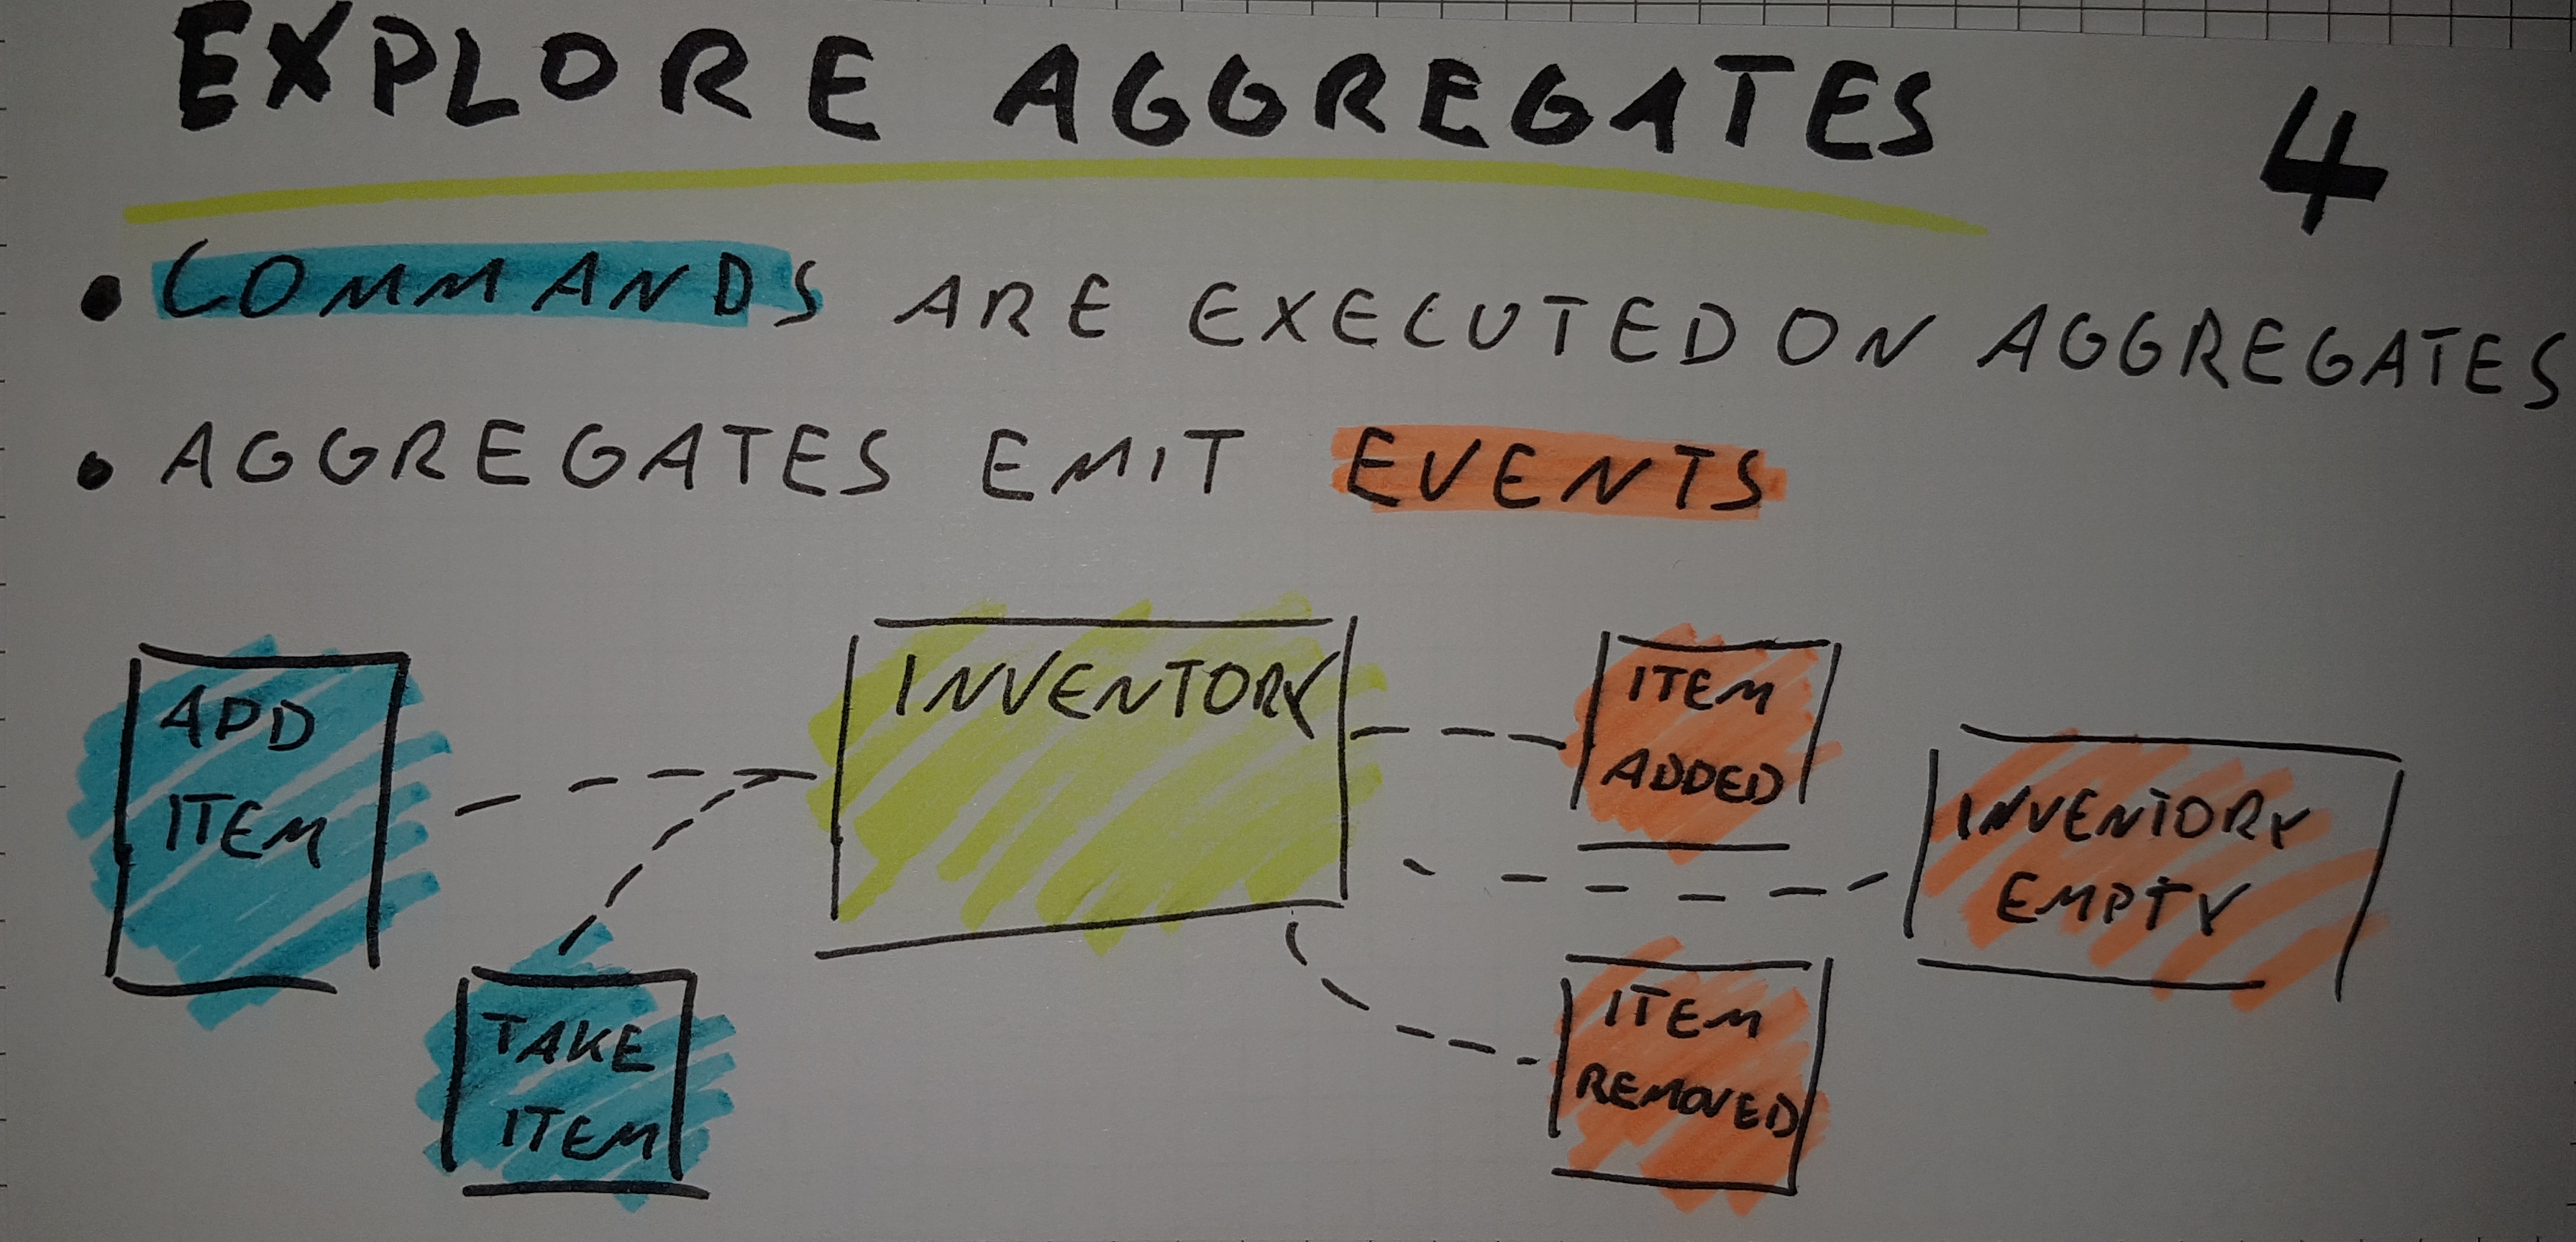 EXPLORE AGGREGATES 4
• COMMANDS ARE EXECUTED ON AGGREGATES
• AGGREGATES EMIT EVENTS
ADD
ITEM
TAKE
ITEM
INVENTORY
ITEM
ADDED
INVENTORY
EMPTY
ITEM
REMOVED